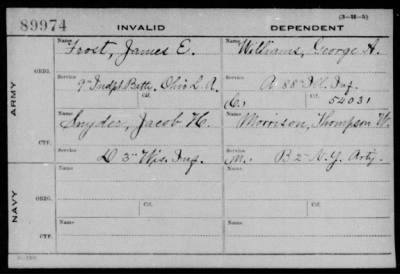 89974 INVALID DEPENDENT (3-11-5)
ARMY
ORIG.
Name
Frost, James E.
Name
Williams, George A.
Service
9" Indpt Batt. Ohio L. A.
Ctf.
Service
A 88" Ill. Inf.
C; Ctf. 54031
CTF.
Name
Snyder, Jacob H.
Name
Morrison, Thompson W.
Service
D 3" Wis. Inf.
Service
M; B 2" N.Y. Arty.
NAVY
ORIG.
Name
Name
Ctf.
Ctf.
CTF.
Name
Name